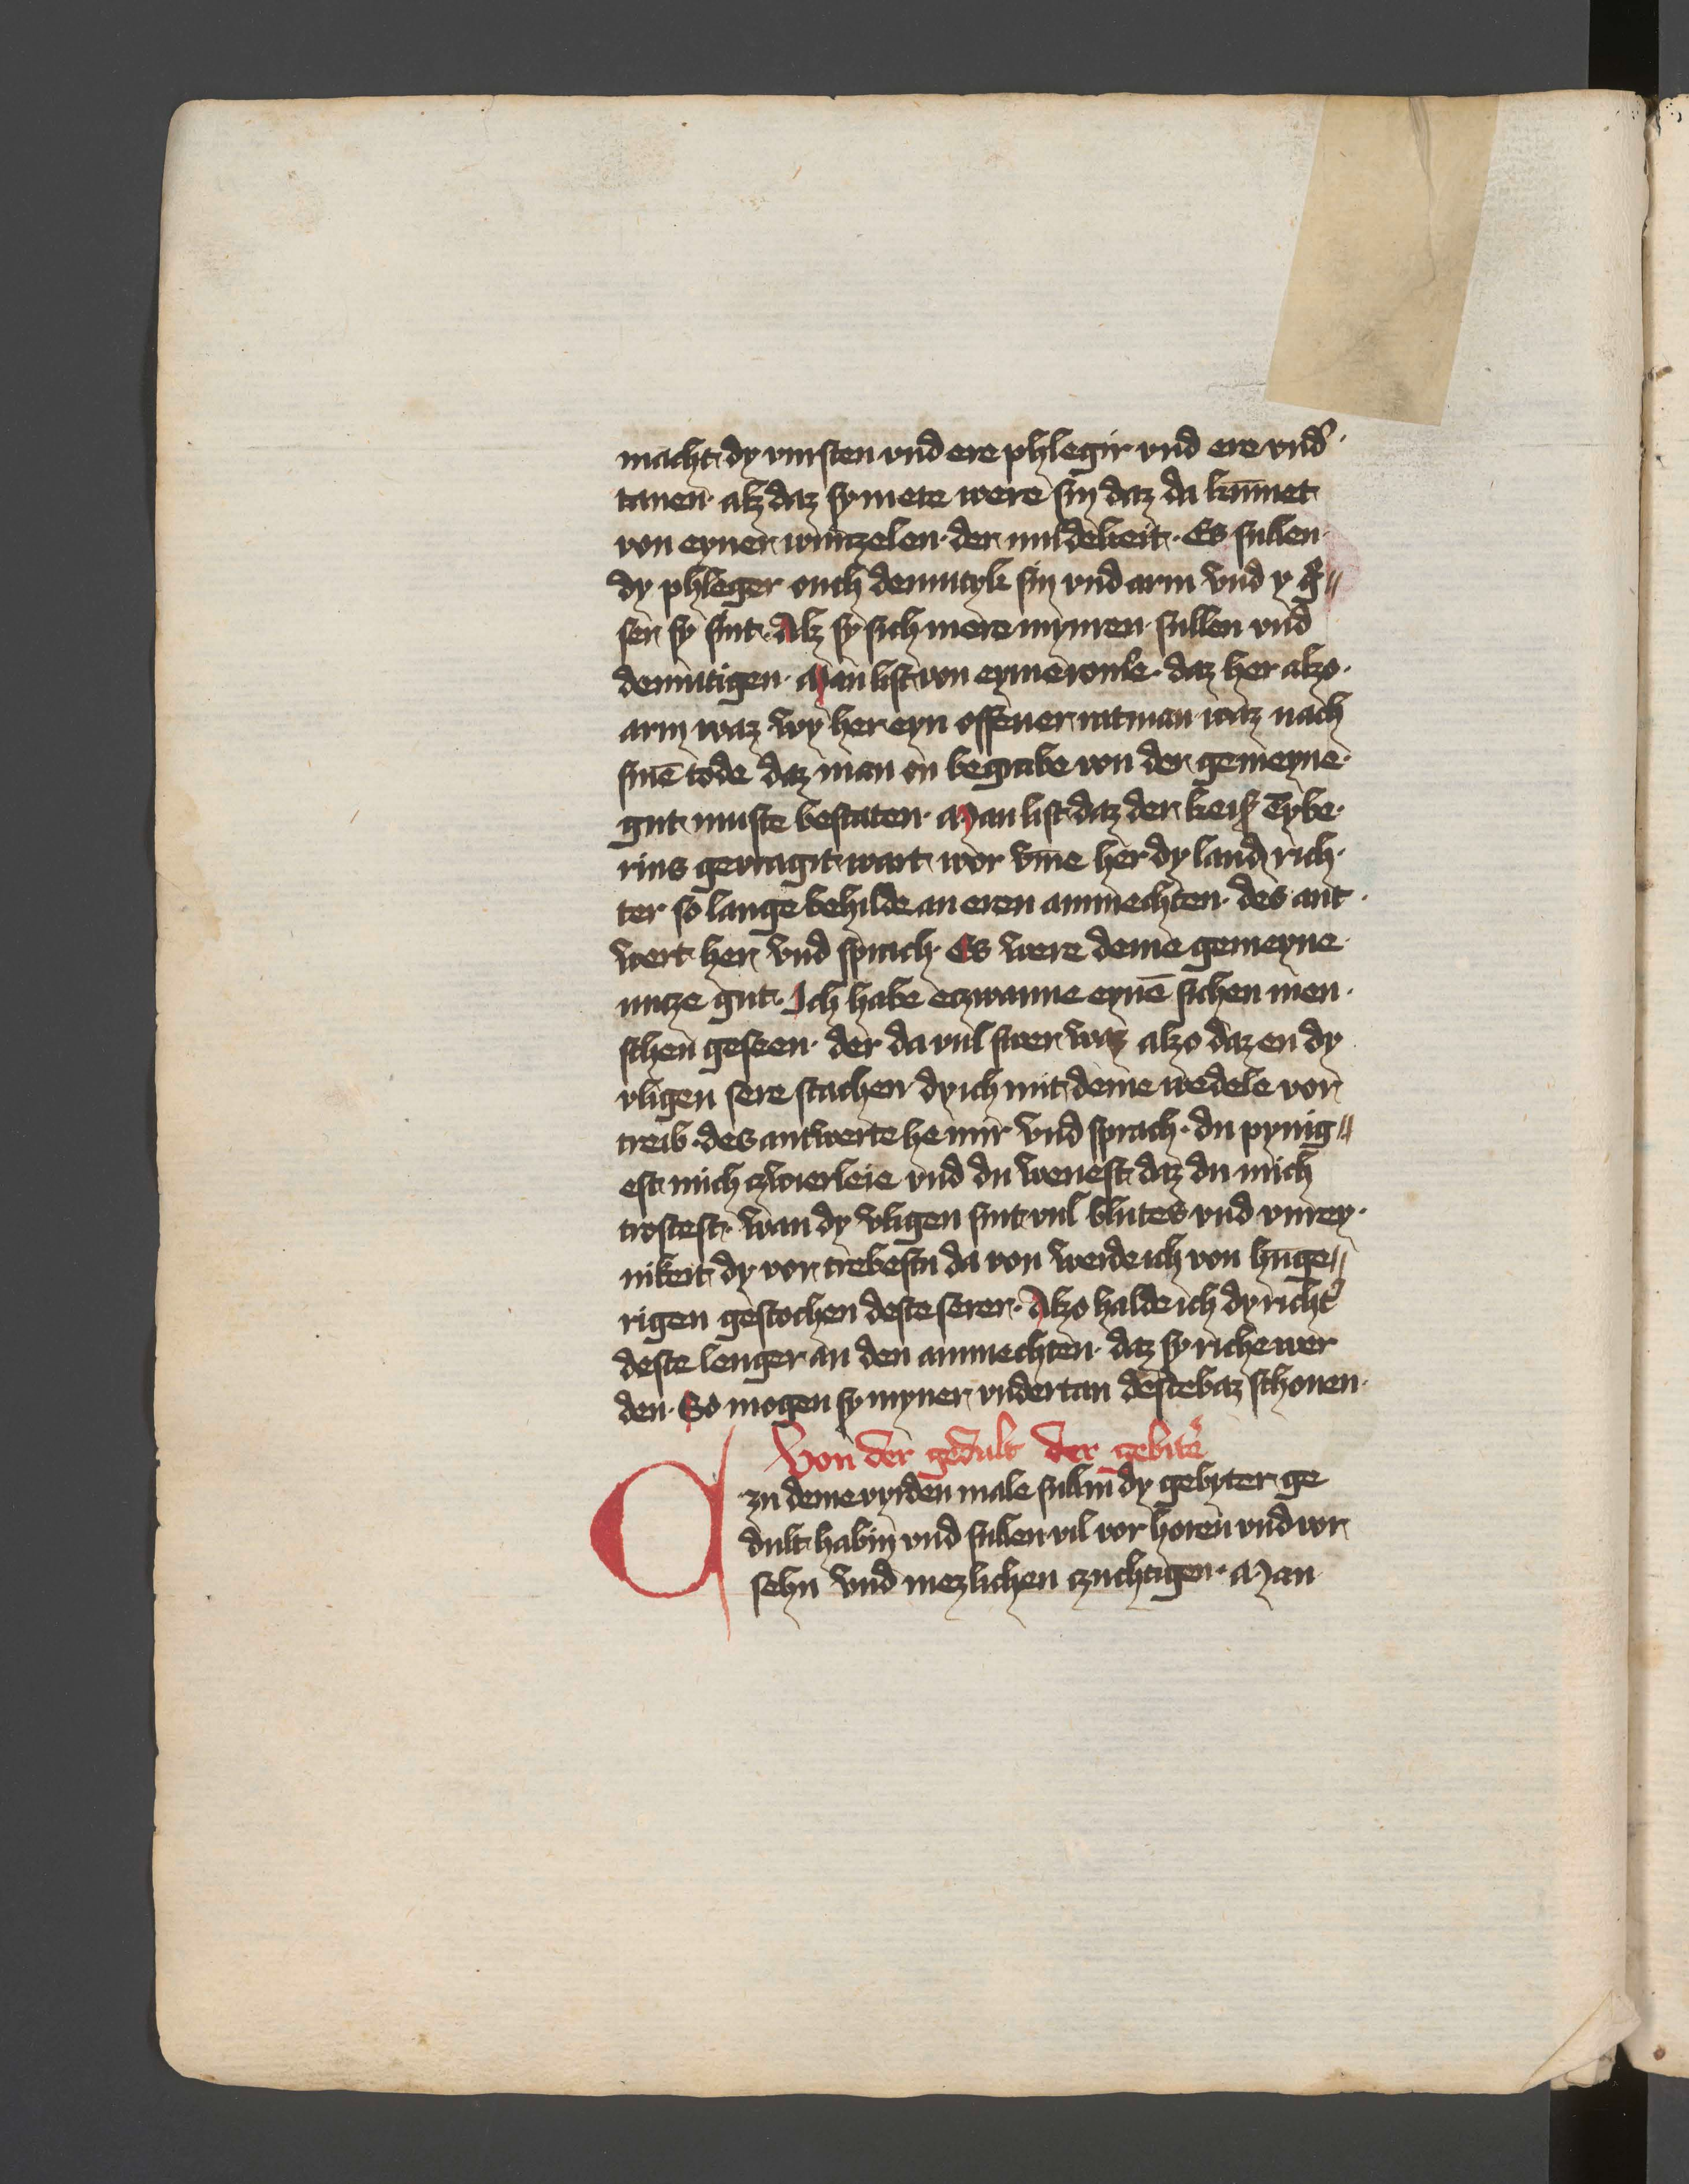 macht dy vursten vnd ere phlegir vnd ere vnd᾽
tanen · alz daz sy mete were sin daz da kūmet
von eyner wurczelen · der mildekeit · Es sullen
dy phleger ouch demutyk sin vnd arm vnd y g᾽·
ser sy sint · Alz sy sich mere mynren sullen vnd
demutigen · Man list von eyme romʼe · daz her alzo ·
arm waz wy her eyn offener ratman waz nach
sinē tode daz man en begrabe von der gemeyne ·
gut muste bestaten · Man list daz der keisʼ Tybe ·
rius gevragit wart wor vm̄e her dy land rich ·
ter so lange behilde an eren ammechten · des ant ·
wert her vnd sprach · Es were deme gemeyne
nutze gut · Ich habe eczwanne eynē sichen men ·
schen geseen · der da vul swer waz alzo daz en dy
vligen sere stachen dy ich mit deme wedele vor
treib · des antwerte he mir vnd sprach · du pynig //
est mich czwierleie vnd du wenest daz du mich
trostest · wan dy vligen sint vul blutes vnd vnrey ·
nikeit dy vor trebestu da von werde ich von hūge //
rigen gestochen deste serer · Alzo halde ich dy richtʼ
deste lenger an den ammechten · daz sy riche wer
den · So mogen sy myner vndertan deste baz schonen ·
Von der gedult der gebitʼe
zu deme vyrden male sullin dy gebyter ge
dult habin vnd sullen vil vor horen vnd vor
sehn vnd mezlichen czuchtigen · Man